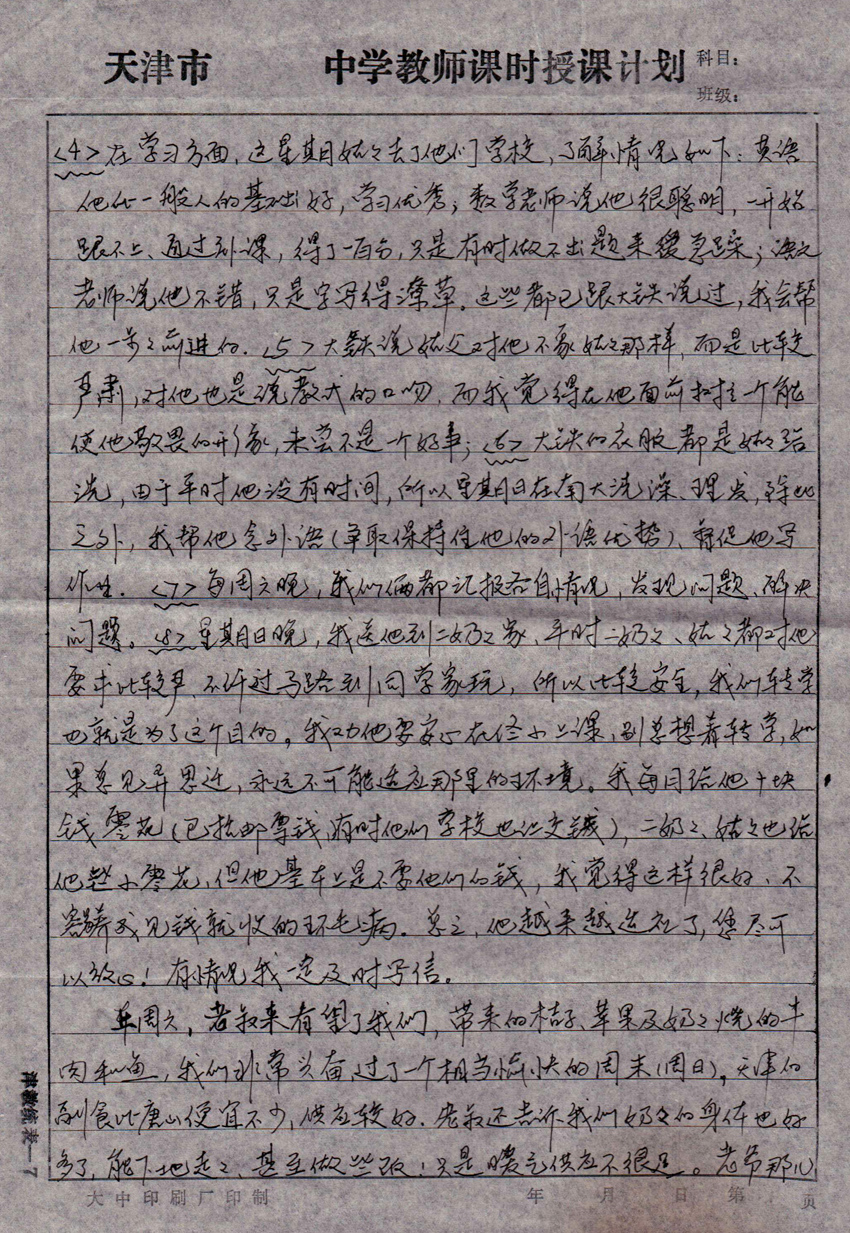 天津市 中学教师课时授课计划 科目：
班级：
<4>在学习方面，这星期日姑々去了他们学校，了解情况如下：英语
他比一般人的基础好，学习优秀；数学老师说他很聪明，一开始
跟不上、通过补课，得了一百分，只是有时做不出题来缓急躁；语文
老师说他不错，只是字写得潦草。这些都已跟大铁说过，我会帮
他一步々前进的．<5>大铁说姑父对他不象姑々那样，而是比较
严肃，对他也是说教式的口吻，而我觉得在他面前树立一个能
使他敬畏的形象，未尝不是一个好事；<6>大铁的衣服都是姑々给
洗，由于平时他没有时间，所以星期日在南大洗澡、理发，除此
之外，我帮他念外语（争取保持住他的外语优势）、督促他写
作业．<7>每周六晚，我们俩都汇报各自情况，发现问题、解决
问题。<8>星期日晚，我送他到二奶々家、平时二奶々、姑々都对他
要求比较严、不许过马路到同学家玩，所以比较安全，我们转学
也就是为了这个目的。我劝他要安心在 小上课，别总想着转学，如
果总见异思迁，永远不可能适应那里的环境。我每月给他十块
钱零花（已括邮票钱，有时他们学校也让交钱），二奶々、姑々也给
他些小零花，但他基本上是不要他们的钱，我觉得这样很好、不
容易养成见钱就收的坏毛病．总之，他越来越适应了，您尽可
以放心！有情况我一定及时写信。
周六，老叔来看望了我们，带来的桔子、苹果及奶々烧的牛
肉和鱼，我们非常兴奋，过了一个相当愉快的周末（周日），天津的
副食比唐山便宜不少，供应较好．老叔还告诉我们奶々的身体也好
多了，能下地走々、甚至做些饭！只是暖气供应不很足。老爷那儿
津教统表—7
大中印刷厂印制 年 月 日 第 页